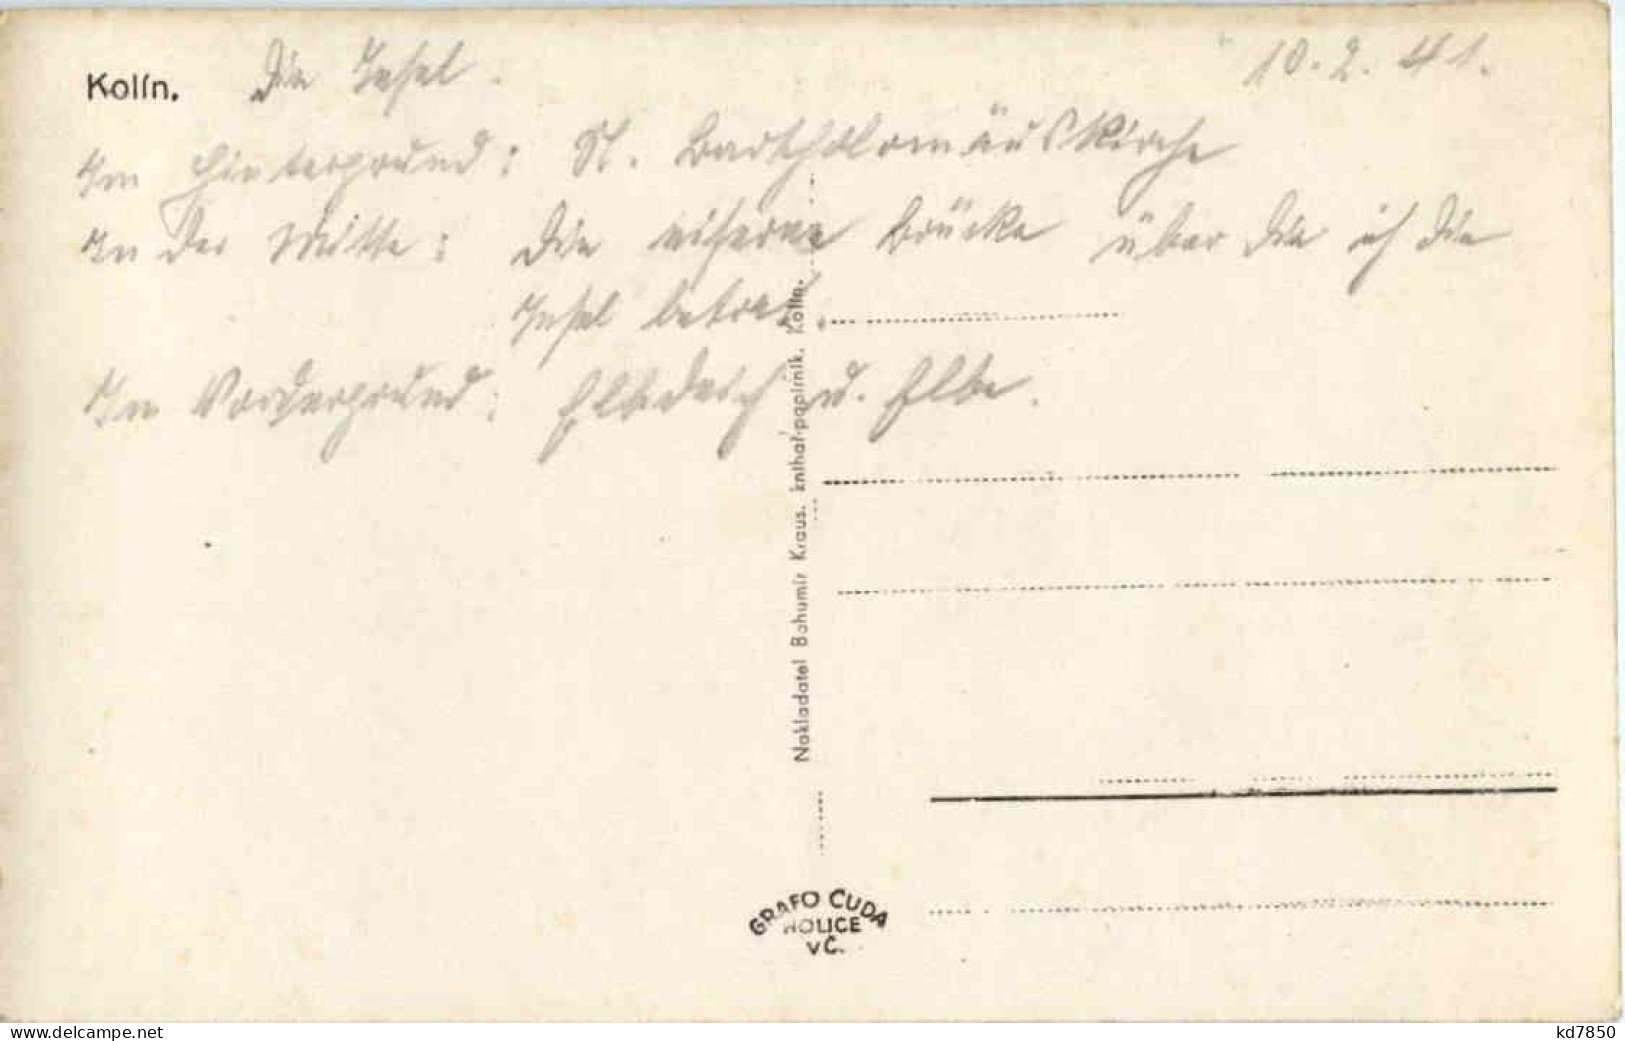 Kolín. Die Insel. 10.2.41.
Im Hintergrund: St. Bartholomäuskirche
In der Mitte: Die eiserne Brücke über die ich die
Insel betrat.
Im Vordergrund: Elbdeich u. Elbe.
Nakladatel Bohumír Kraus, knihař-papírník, Kolín.
GRAFO ČUDA
HOLICE
V Č.
www.delcampe.net
kd7850